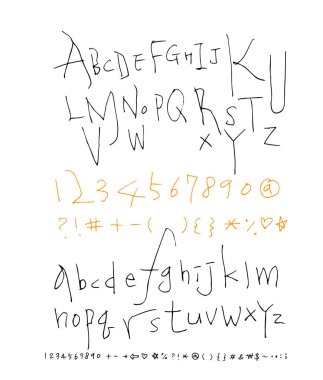 ABCDEFGHIJKU
LMNOPQRST
VWXYZ
1234567890@
?!#+-( ){}*%♡☆
abcdefghijklm
nopqrstuvwxyz
1234567890 +-→⇦♡☆*%?!*@(){}#&₩$~-•:;